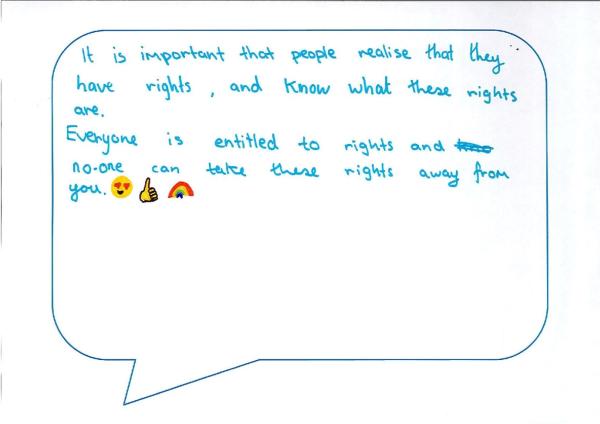 It is important that people realise that they
have rights, and know what these rights
are.
Everyone is entitled to rights and
no-one can take these rights away from
you. 😍👍🌈